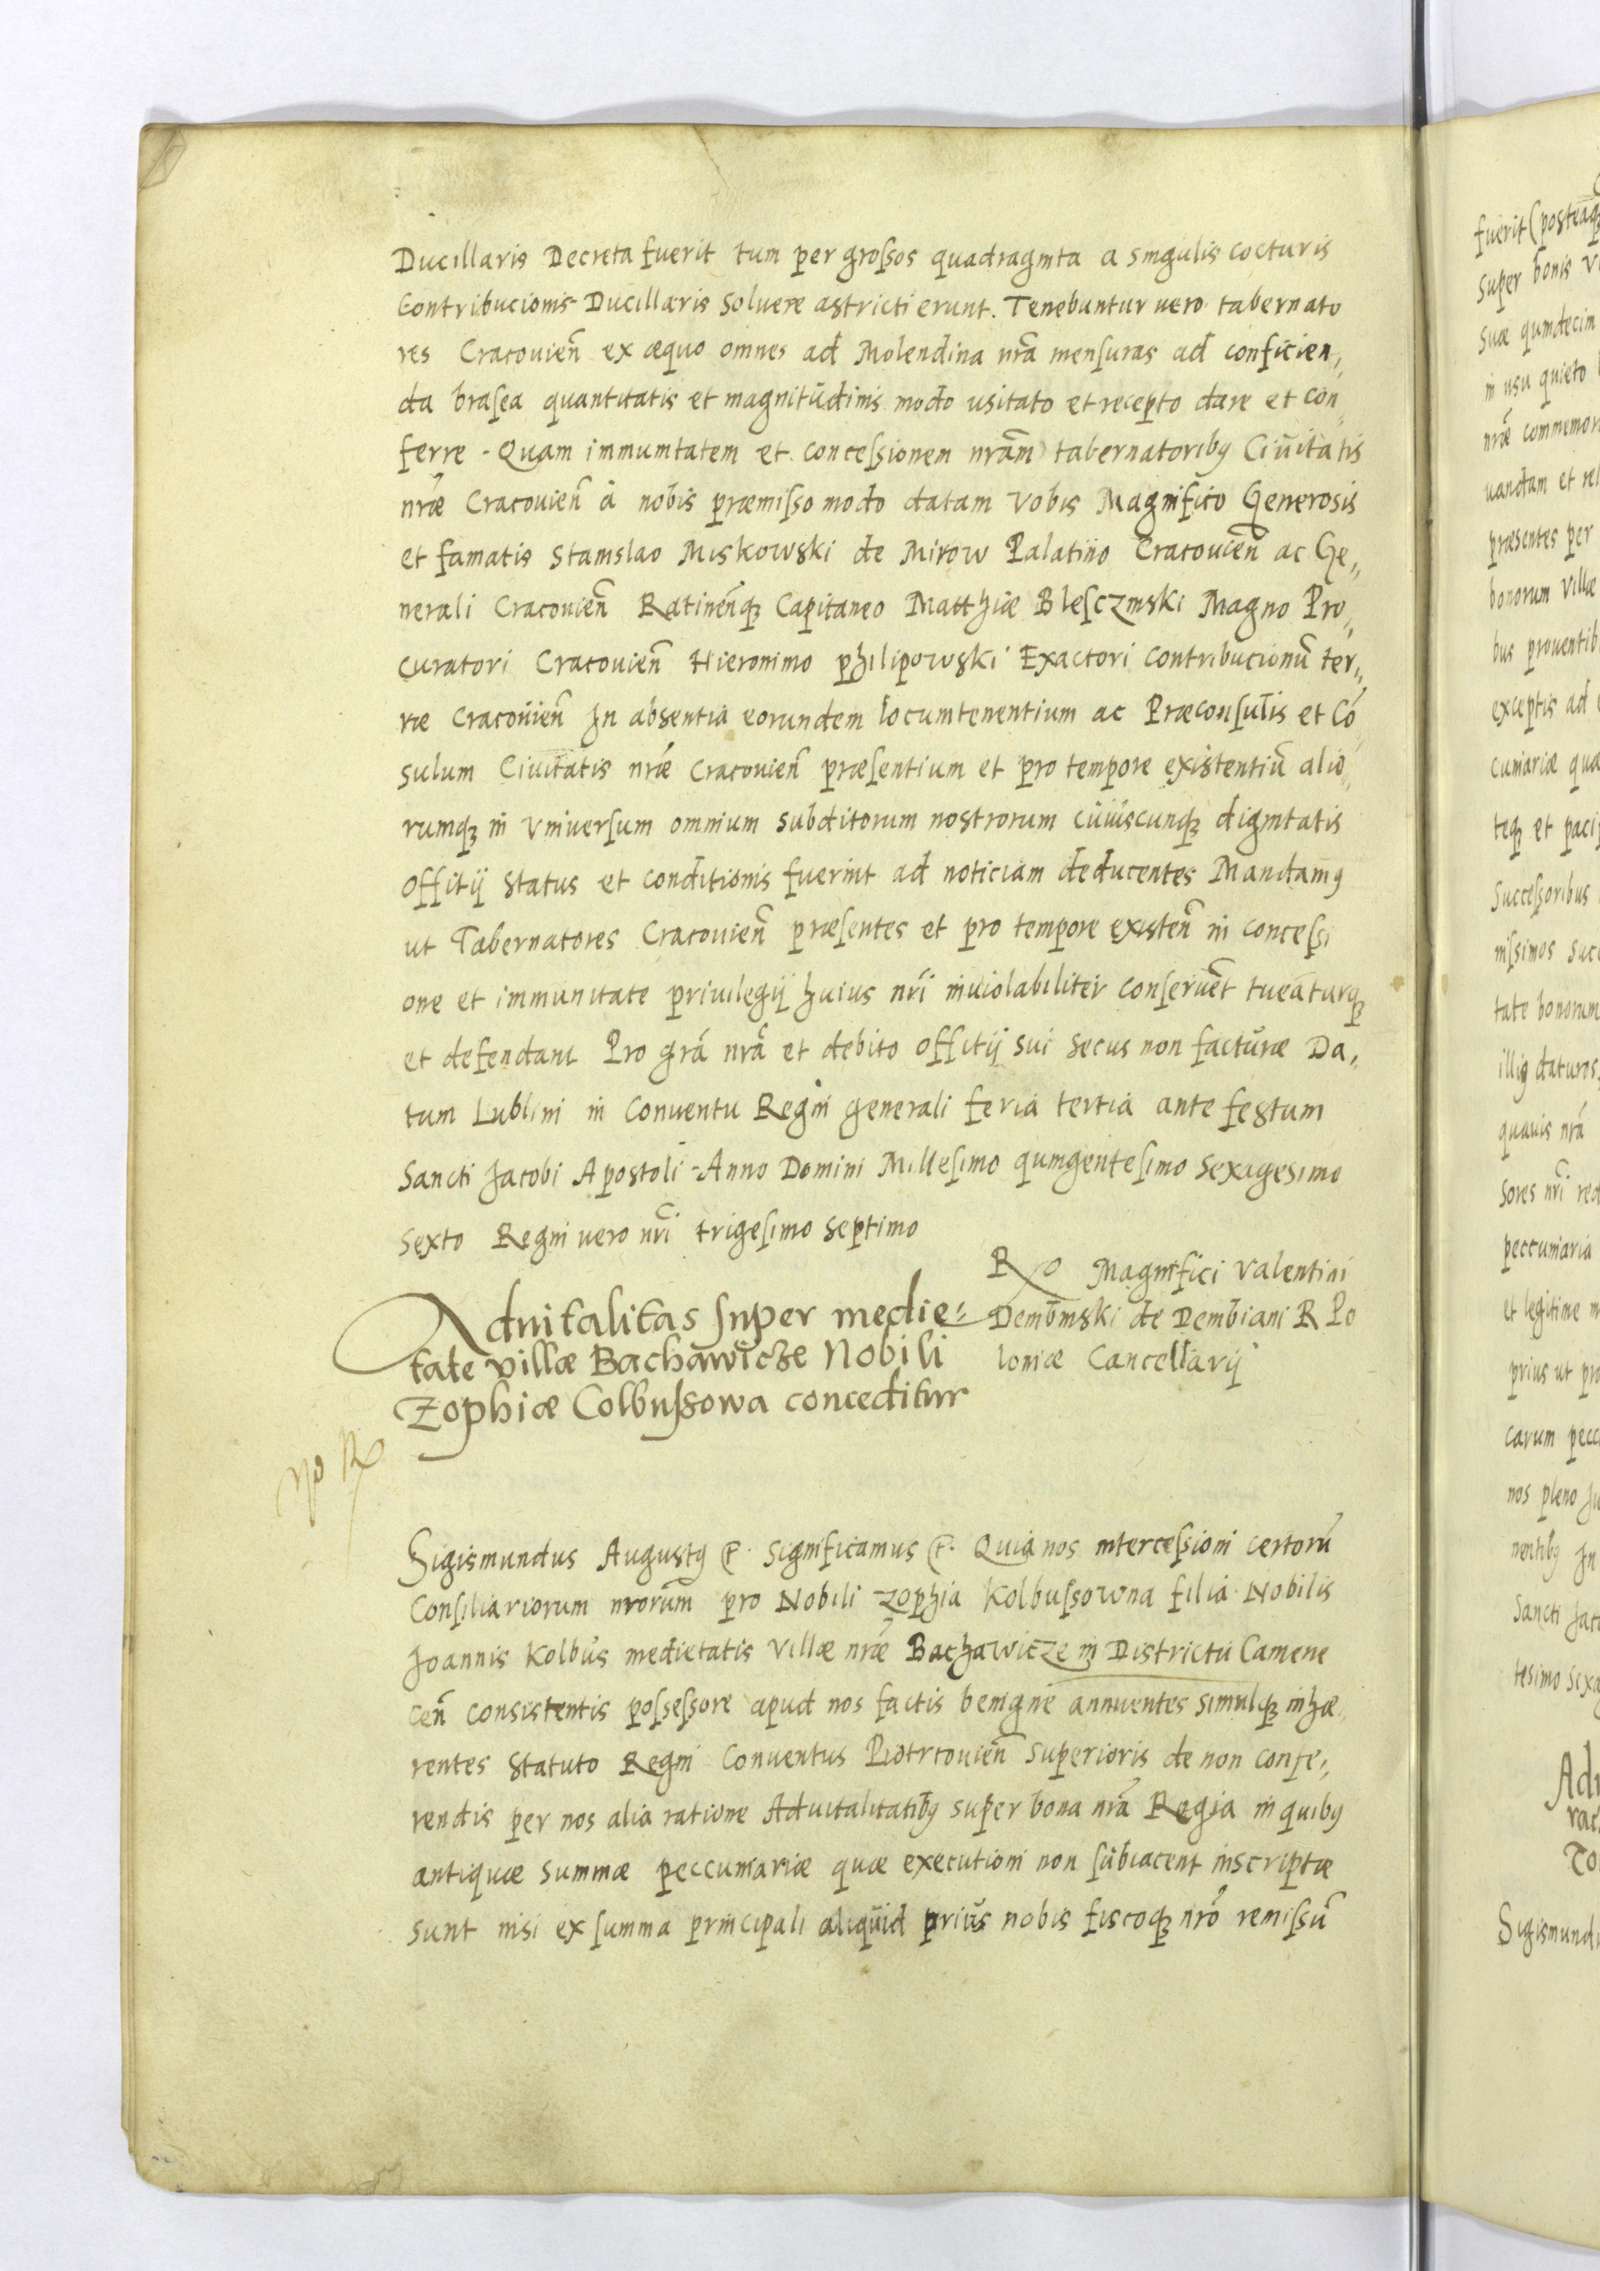 Ducillaris Decreta fuerit tum per grossos quadraginta a singulis cocturis
Contribucionis Ducillaris Solvere astricti erunt. Tenebuntur vero tabernato
res Cracovien̄ ex æquo omnes ad Molendina nr̄a mensuras ad conficien,,
da brasea quantitatis et magnitudinis modo usitato et recepto dare et con
ferre. Quam immunitatem et concessionem nr̄am tabernatoribꝰ Civitatis
nr̄æ Cracovien̄ à nobis præmisso modo datam Vobis Magnifico Generosis
et famatis Stanislao Miskowski de Mirow Palatino Cracovien̄ ac Ge,,
nerali Cracovien̄ Ratinen̄qꝫ Capitaneo Matthiæ Blesczinski Magno Pro,,
curatori Cracovien̄ Hieronimo philipowski Exactori contribucionū ter,,
ræ Cracovien̄ In absentia eorundem locumtenentium ac Præconsulis et Cō
sulum Civitatis nr̄æ Cracovien̄ præsentium et pro tempore existentiū alio
rumqꝫ in Universum omnium subditorum nostrorum cuiuscunqꝫ dignitatis
Offitij Status et conditionis fuerint ad noticiam deducentes Mandamꝰ
ut Tabernatores Cracovien̄ præsentes et pro tempore existen̄ in concessi
one et immunitate privilegij huius nr̄i inviolabiliter conservēt tueāturqꝫ
et defendant Pro grā nr̄ā et debito offitij sui Secus non facturæ Da,,
tum Lublini in Conventu Regni generali feria tertia ante festum
Sancti Jacobi Apostoli Anno Domini Millesimo quingentesimo Sexagesimo
Sexto Regni vero nr̄i trigesimo Septimo
Ro Magnifici Valentini
Dembinski de Dembiani R Po
loniæ Cancellarij
Advitalitas super medie,,
tate villæ Bachawicze Nobili
Zophiæ Colbussowa conceditur
Sigismundus Augustꝰ etc. Significamus etc. Quia nos intercessioni certorū
Consiliariorum nrorūm pro Nobili Zophia Kolbussowna filia Nobilis
Joannis Kolbus medietatis Villæ nr̄æ Bachawicze in Districtu Camene
cen̄ consistentis possessore apud nos factis benigne annuentes simulqꝫ inhæ
rentes Statuto Regni Conventus Piotrcovien̄ Superioris de non confe,,
rendis per nos alia ratione Advitalitatibꝰ super bona nr̄a Regia in quibꝰ
antiquæ Summæ peccuniariæ quæ executioni non subiacent inscriptæ
sunt nisi ex summa principali aliquid prius nobis fiscoqꝫ nr̄o remissū